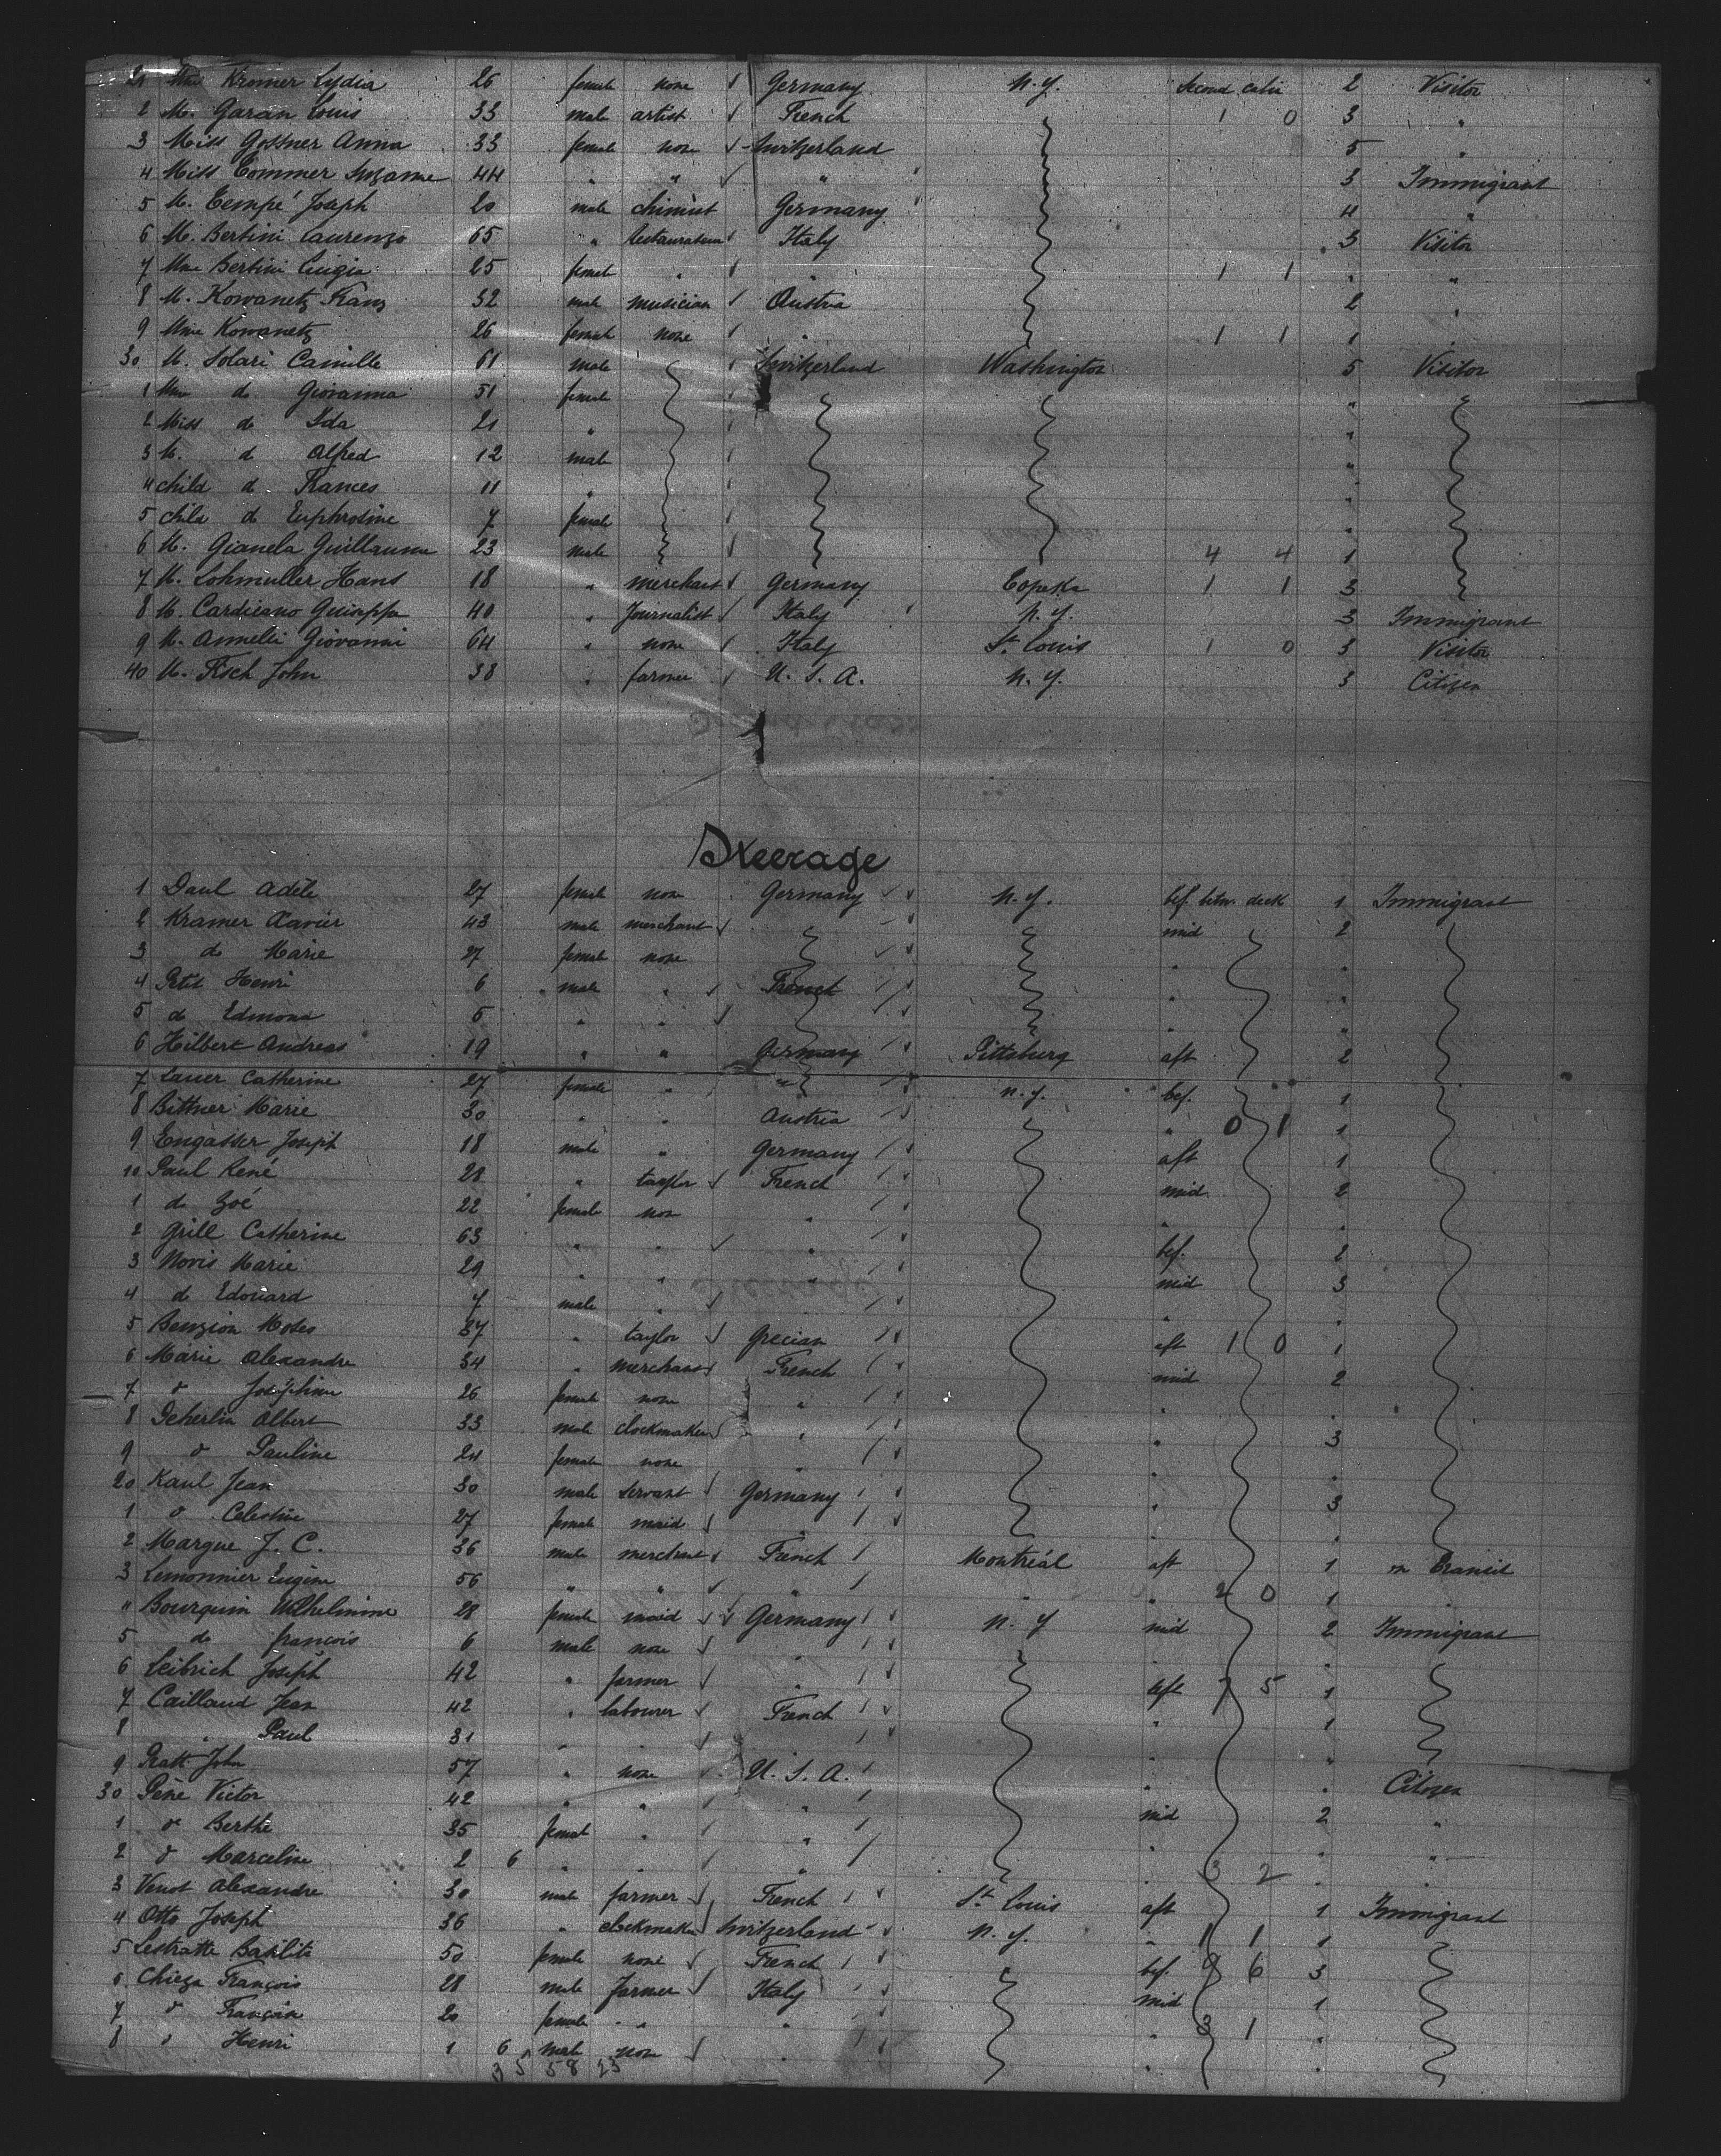 21 Mme Kromer Lydia 26 female none Germany N.Y. Second cabin 2 Visitor
2 M. Garan Louis 33 male artist French 1 0 3 "
3 Miss Gossner Anna 33 female none Switzerland 5 "
4 Miss Tommer Suzanne 44 " " " 3 Immigrant
5 M. Tempé Joseph 20 male chimist Germany 4 "
6 M. Bertini Laurenzo 65 " Restaurateur Italy 3 Visitor
7 Mme Bertini Luigia 25 female " " 1 1 " "
8 M. Kowanetz Franz 32 male musician Austria 2 "
9 Mme Kowanetz 26 female none " 1 1 1 "
30 M. Solari Camille 61 male Switzerland Washington 5 Visitor
1 Mme do Giovanna 51 female "
2 Miss do Ida 21 " "
3 M. d Alfred 12 male "
4 child d Frances 11 " "
5 child d Euphrosine 7 female "
6 M. Gianela Guillaume 23 male 4 4 1
7 M. Lohmuller Hans 18 " merchant Germany Topeka 1 1 3
8 M. Cardicano Guiseppe 40 " Journalist Italy N.Y. 3 Immigrant
9 M. Annelli Giovanni 64 " none Italy St. Louis 1 0 3 Visitor
40 M. Fisch John 38 " farmer U.S.A. N.Y. 3 Citizen
Steerage
1 Daul Adèle 27 female none Germany N.Y. bef. betw. deck 1 Immigrant
2 Kramer Xavier 43 male merchant mid 2
3 do Marie 27 female none " "
4 Petit Henri 6 male " French " "
5 do Edmond 5 " " " "
6 Hilbert Andreas 19 " " Germany Pittsburg aft 2
7 Lauer Catherine 27 female " " N.Y. bef. 1
8 Bittner Marie 30 " " Austria " 0 1 1
9 Engasser Joseph 18 male " Germany aft 1
10 Paul René 28 " taylor French mid 2
1 do Zoé 22 female none " " "
2 Grill Catherine 63 " " " bef. 2
3 Novis Marie 29 " " " mid 3
4 do Edouard 7 male " " "
5 Benzion Moses 37 " taylor Grecian aft 1 0 1
6 Marie Alexandre 34 " merchant French mid 2
7 do Joséphine 26 female none " " "
8 Scherlin Albert 33 male clockmaker " " 3
9 do Pauline 24 female none " " "
20 Kaul Jean 30 male servant Germany " 3
1 do Celestine 27 female maid " " "
2 Margue J. C. 36 male merchant French Montréal aft 1 in transit
3 Lemonnier Eugène 56 " " " " " 2 0 1 "
4 Bourquin Wilhelmine 28 female maid Germany N.Y mid 2 Immigrant
5 do françois 6 male none " " "
6 Leibrich Joseph 42 " farmer " aft 7 5 1
7 Caillaud Jean 42 " labourer French " 1
8 " Paul 31 " " " " "
9 Pratt John 57 " none U.S.A. " " Citizen
30 Pène Victor 42 " " " mid 2
1 do Berthe 35 femal " " " " "
2 do Marceline 2 6 " " " " 3 2 " "
3 Venot Alexandre 30 male farmer French St. Louis aft 1 Immigrant
4 Otto Joseph 36 " clockmaker Switzerland N.Y. " 1 1 1
5 Lestratte Basilite 50 female none French bef. 9 6 3
6 Chiega François 28 male farmer Italy mid 1
7 do 20 female " " " 3 1 "
8 " Henri 1 6 male none " " "
35 58 23